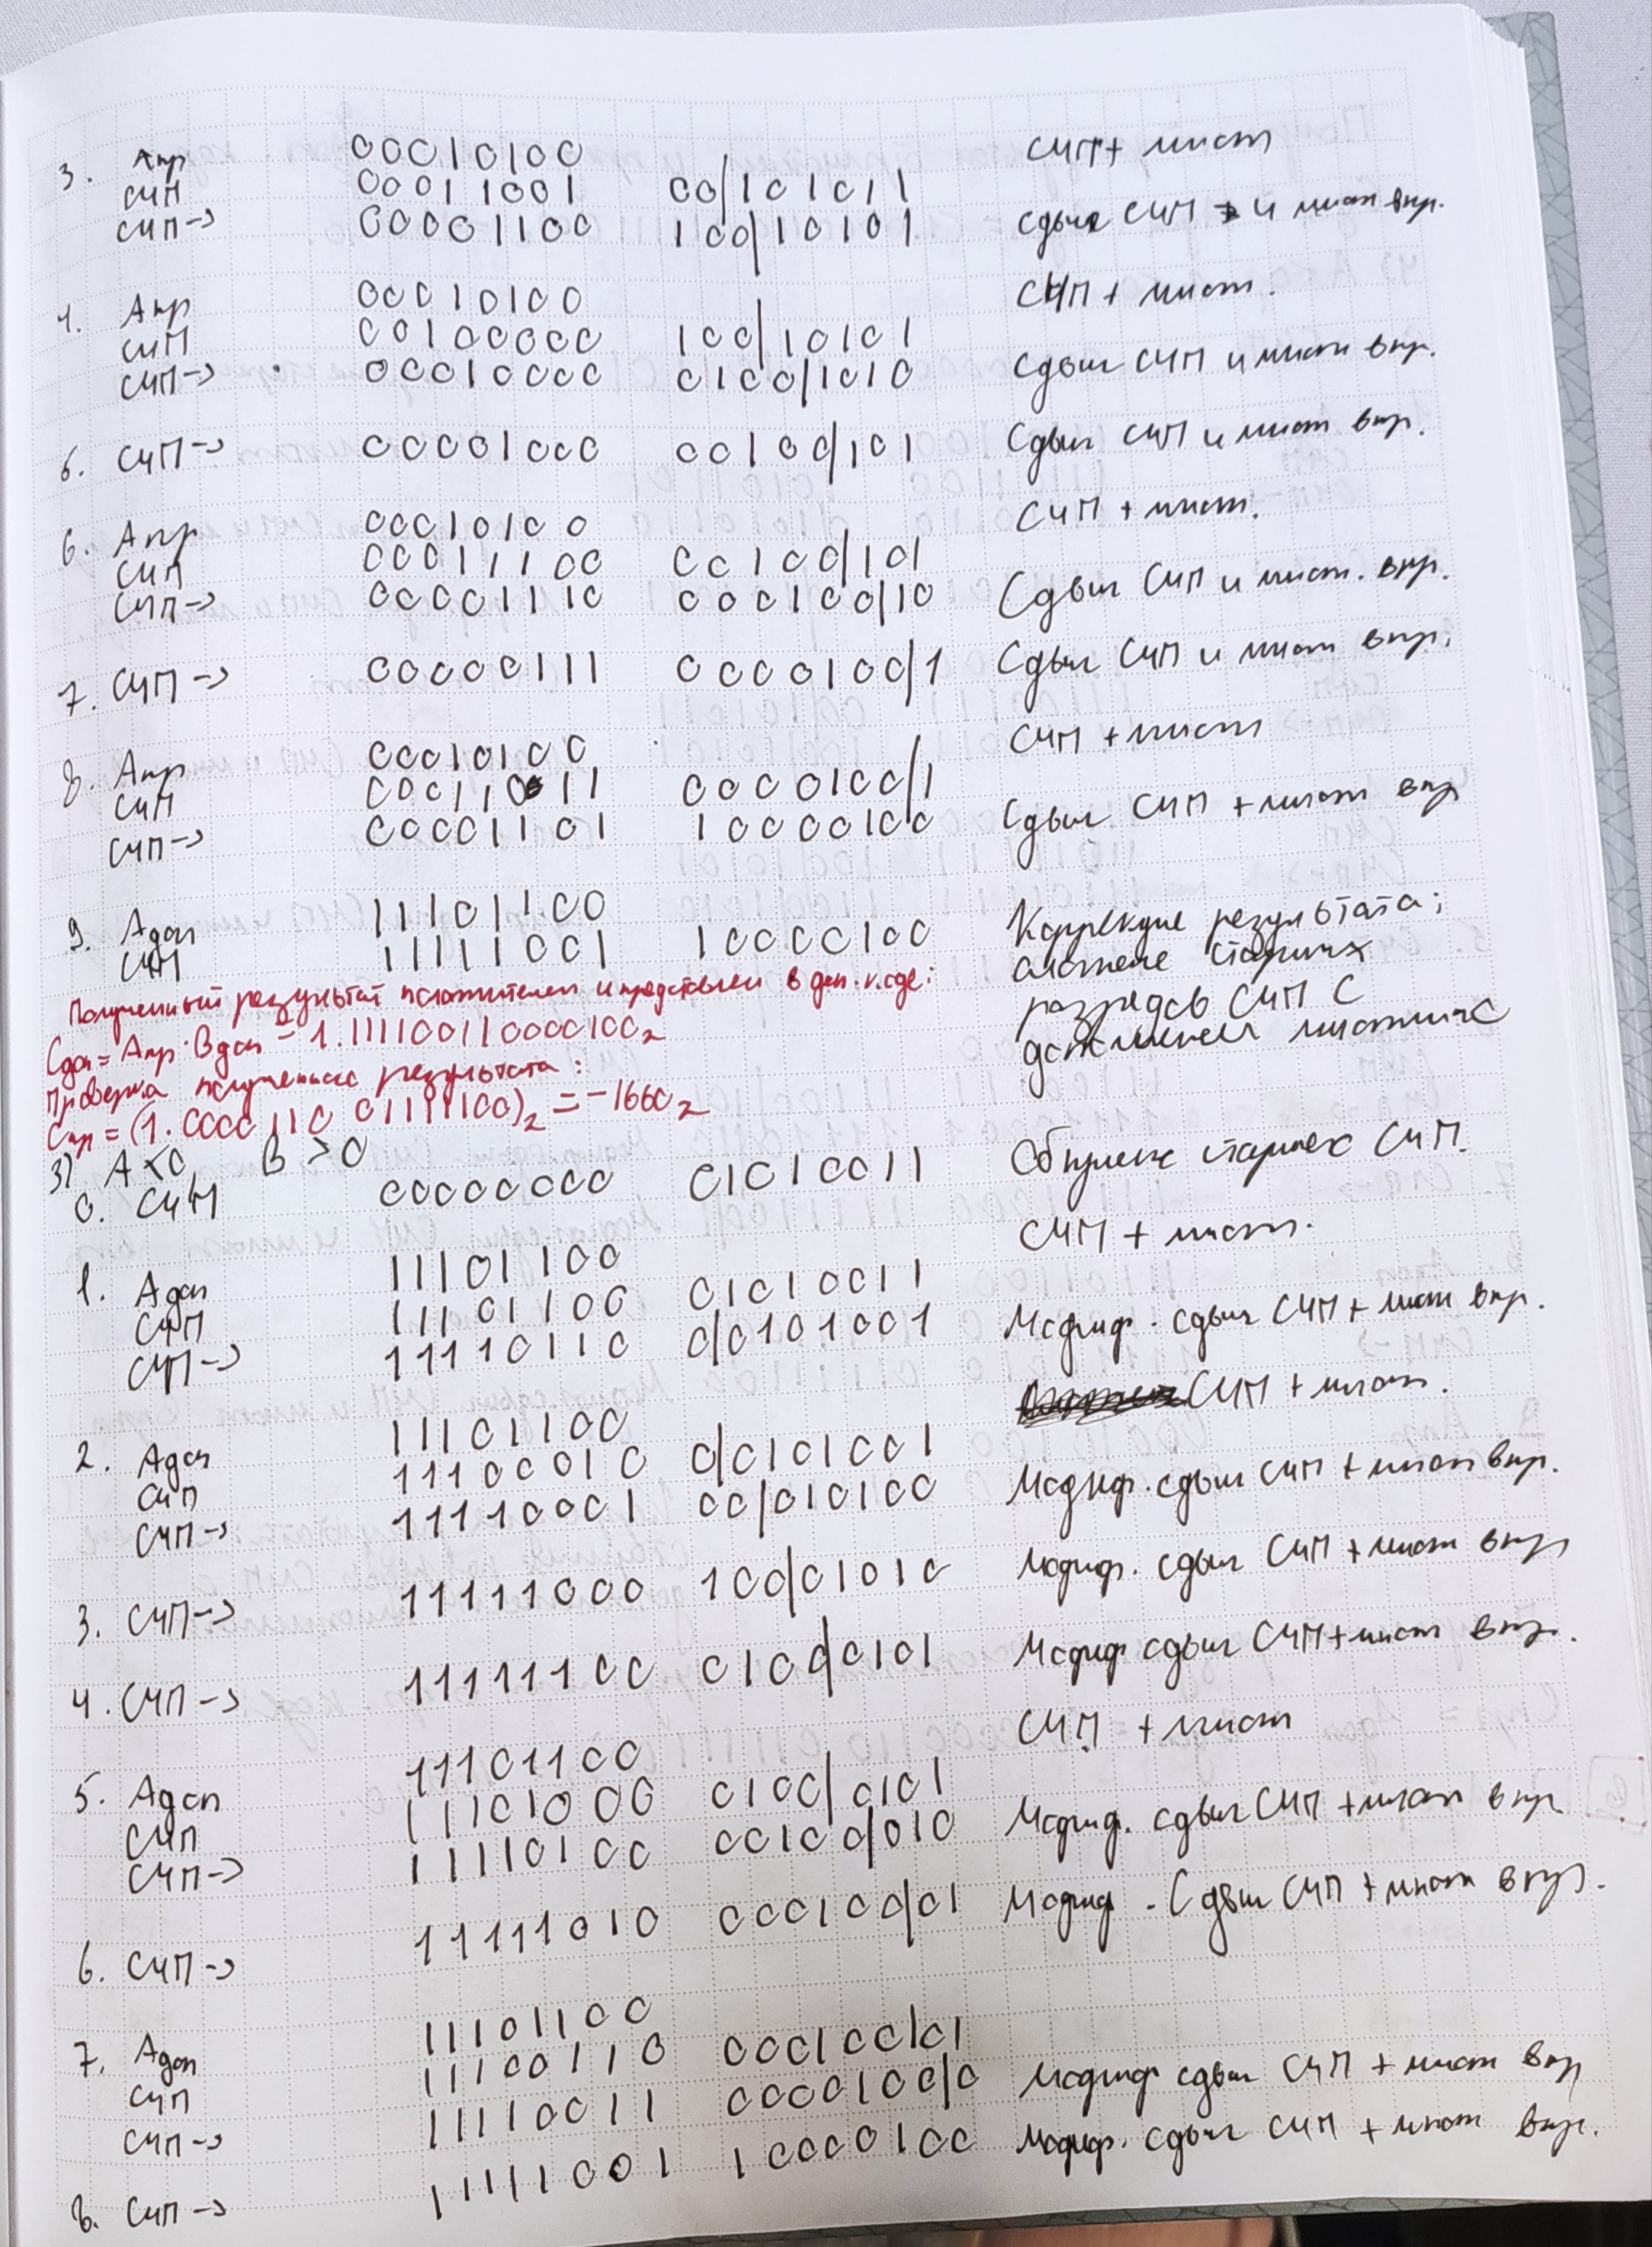 3. Апр 00010100 СЧП + множ
СЧП 00011001 00/101011
СЧП→ 00001100 100/10101 Сдвиг СЧП и множ впр.
4. Апр 00010100 СЧП + множ.
СЧП 00100000 100/10101
СЧП→ 00010000 0100/1010 Сдвиг СЧП и множ впр.
5. СЧП→ 00001000 00100/101 Сдвиг СЧП и множ впр.
6. Апр 00010100 СЧП + множ.
СЧП 00011100 00100/101
СЧП→ 00001110 000100/10 Сдвиг СЧП и множ. впр.
7. СЧП→ 00000111 0000100/1 Сдвиг СЧП и множ впр.
8. Апр 00010100 СЧП + множ
СЧП 00011011 0000100/1
СЧП→ 00001101 10000100 Сдвиг СЧП + множ впр
9. Адоп 11101100 Коррекция результата;
СЧП 11111001 10000100 сложение старших
разрядов СЧП С
дополнением множимого
Полученный результат положителен и представлен в доп. коде:
Cдоп = Апр · Bдоп = 1.111100110000100₂
Проверка полученного результата:
Cпр = (1.0000110 01111100)₂ = -1660₂
3) A<0 B>0
0. СЧП 00000000 01010011 Обнуление старших СЧП.
1. Адоп 11101100 СЧП + множ.
СЧП 11101100 01010011
СЧП→ 11110110 0/0101001 Модиф. сдвиг СЧП + множ впр.
2. Адоп 11101100 СЧП + множ.
СЧП 11100010 0/0101001
СЧП→ 11110001 00/010100 Модиф. сдвиг СЧП + множ впр.
3. СЧП→ 11111000 100/01010 Модиф. сдвиг СЧП + множ впр
4. СЧП→ 11111100 0100/0101 Модиф сдвиг СЧП + множ впр.
5. Адоп 11101100 СЧП + множ
СЧП 11101000 0100/0101
СЧП→ 11110100 00100/010 Модиф. сдвиг СЧП + множ впр
6. СЧП→ 11111010 000100/01 Модиф. Сдвиг СЧП + множ впр.
7. Адоп 11101100
СЧП 11100110 000100/01
СЧП→ 11110011 0000100/0 Модиф сдвиг СЧП + множ впр
8. СЧП→ 11111001 10000100 Модиф. сдвиг СЧП + множ впр.